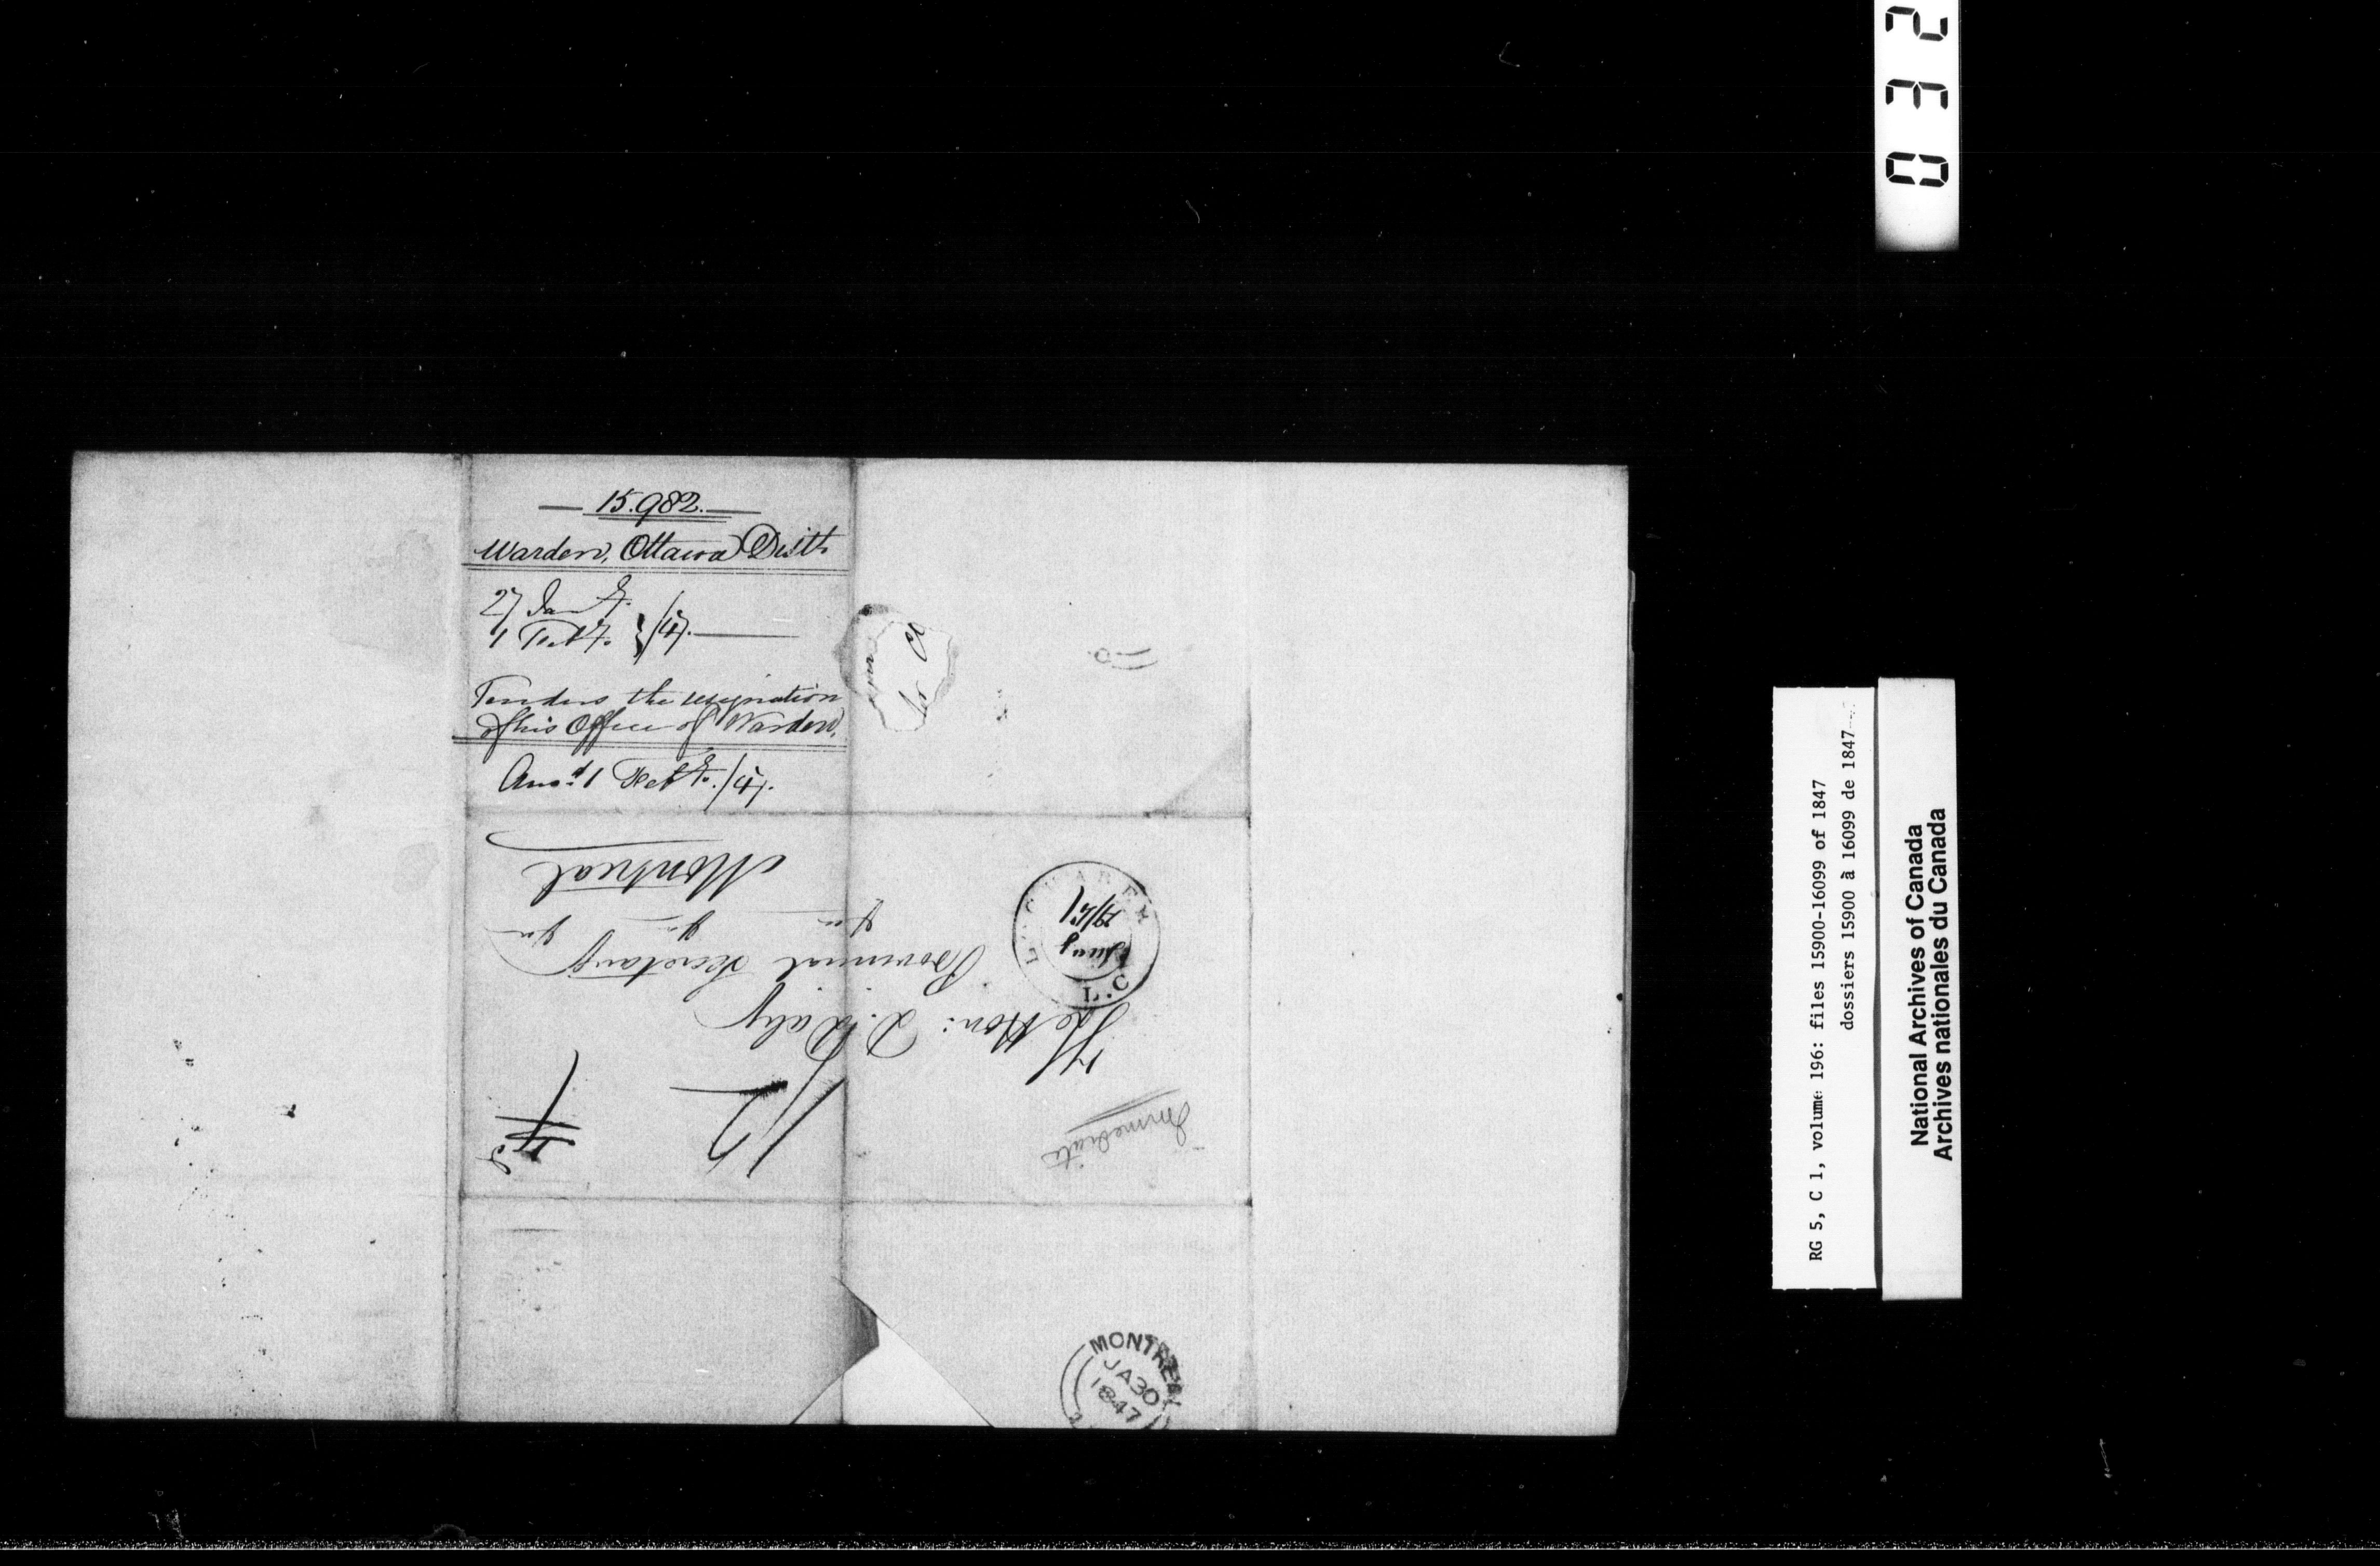 032
15.982.
Warden, Ottawa Distt.
27 Jany.
1 Feby. }/47.
Tenders the resignation
of his Office of Warden.
Ansd. 1 Feby./47.
Immediate
The Hon: D. Daly
Provincial Secretary
Montreal
L.C
MONTREAL
JA 30
1847
RG 5, C 1, volume 196: files 15900-16099 of 1847
dossiers 15900 à 16099 de 1847
National Archives of Canada
Archives nationales du Canada